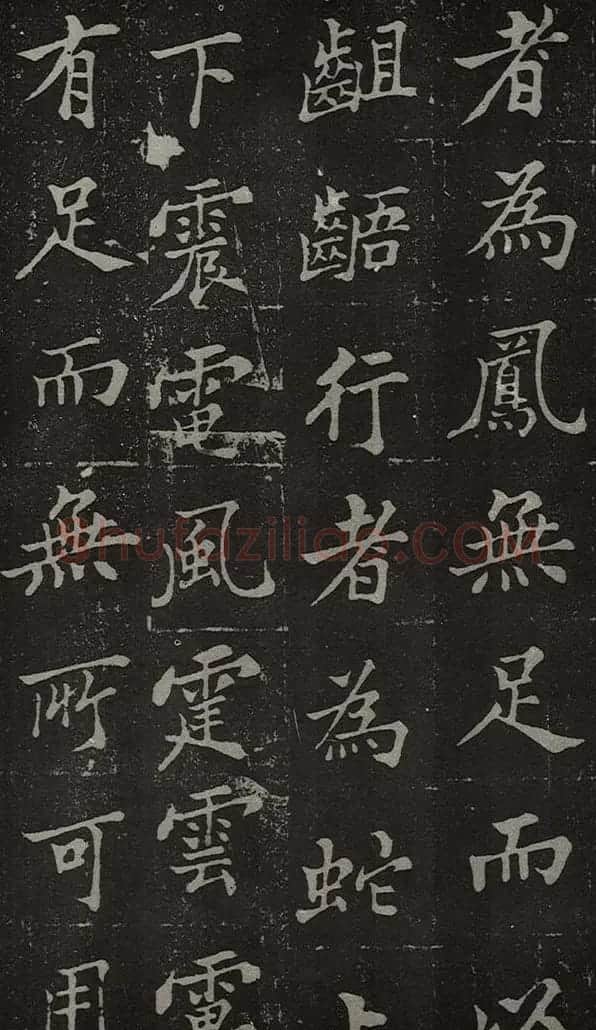 者為鳳無足而
齟齬行者為蛇
下震電風霆雲
有足而無所可用
Shufaziliao.COM